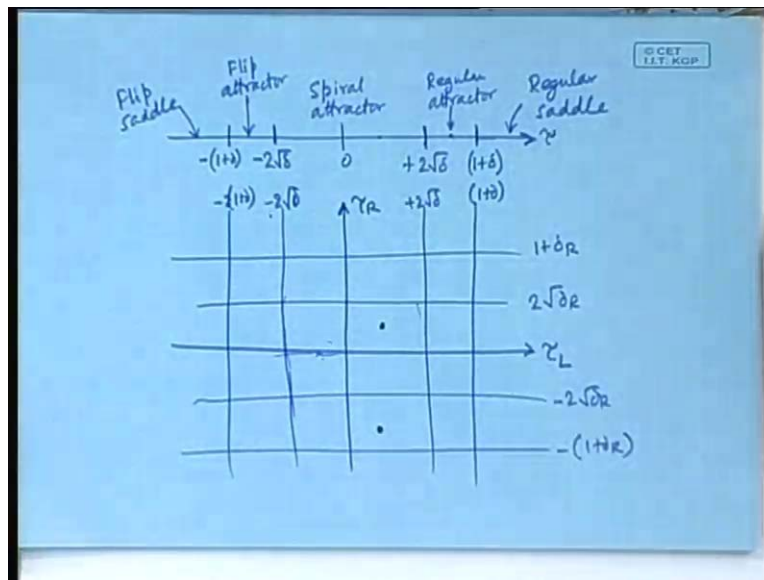 © CET
I.I.T. KGP
Flip saddle
Flip attractor
Spiral attractor
Regular attractor
Regular saddle
-(1+δ) -2√δ 0 +2√δ (1+δ) τ
-(1+δ) -2√δ τR +2√δ (1+δ)
1+δR
2√δR
τL
-2√δR
-(1+δR)